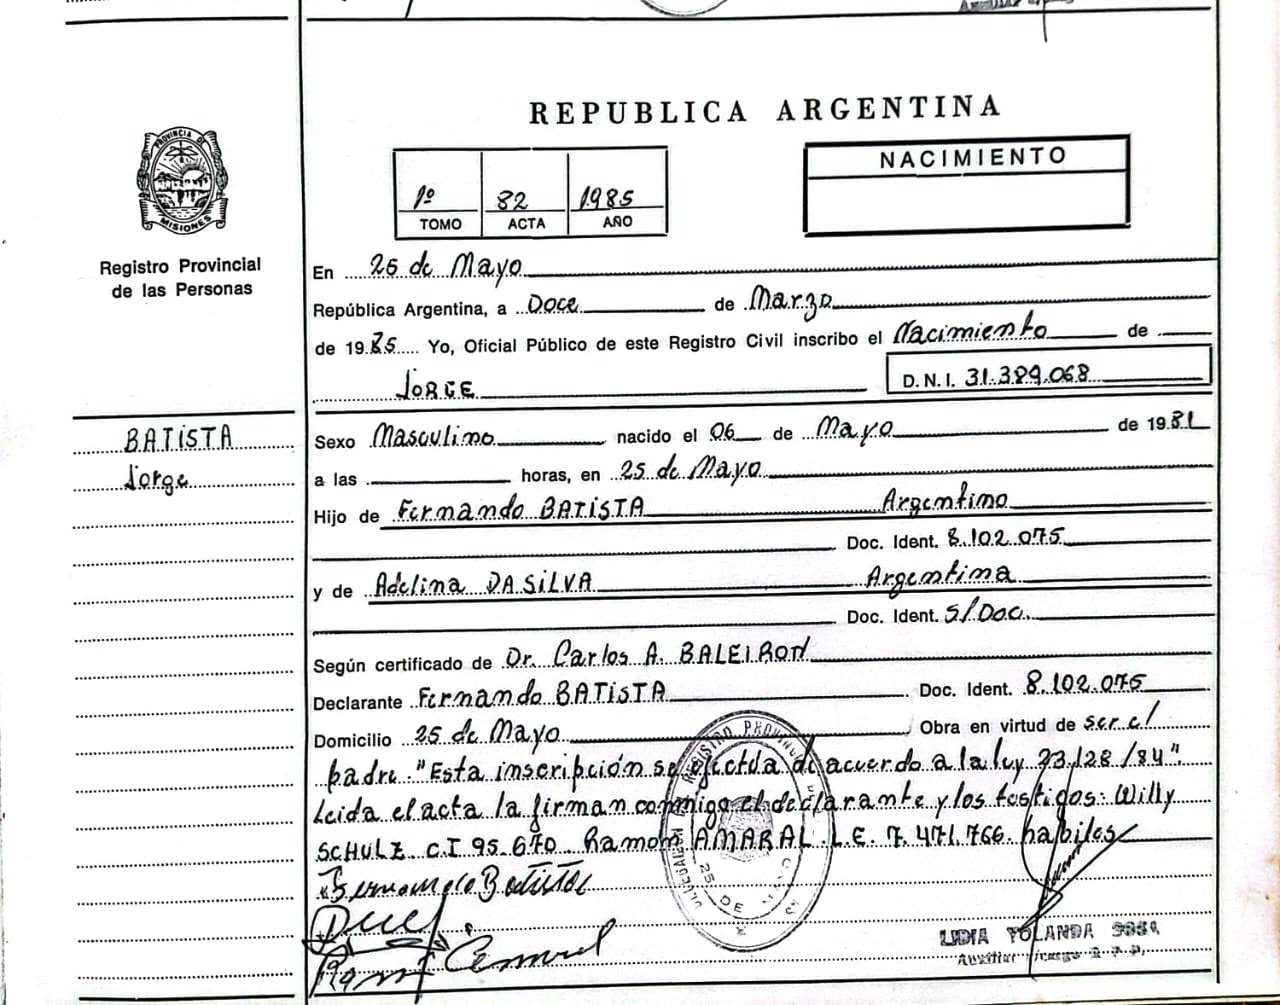 REPUBLICA ARGENTINA
PROVINCIA DE
MISIONES
Registro Provincial
de las Personas
1º 82 1985
TOMO ACTA AÑO
NACIMIENTO
En 25 de Mayo
República Argentina, a Doce de Marzo
de 1985 Yo, Oficial Público de este Registro Civil inscribo el Nacimiento de
JORGE D.N.I. 31.389.068
BATISTA
Jorge
Sexo Masculino nacido el 06 de Mayo de 1981
a las horas, en 25 de Mayo
Hijo de Fernando BATISTA Argentino
Doc. Ident. 8.102.075
y de Adelina DA SILVA Argentina
Doc. Ident. S/Doc.
Según certificado de Dr. Carlos A. BALEIRON
Declarante Fernando BATISTA Doc. Ident. 8.102.075
Domicilio 25 de Mayo Obra en virtud de ser el
padre "Esta inscripción se efectúa de acuerdo a la ley 23.128/84".
Leida el acta la firman conmigo el declarante y los testigos: Willy
SCHULZ C.I 95.670 Ramon AMARAL L.E. 7.471.766 habiles
REGISTRO PROVINCIAL
25 DE MAYO
LIDIA YOLANDA
Auxiliar